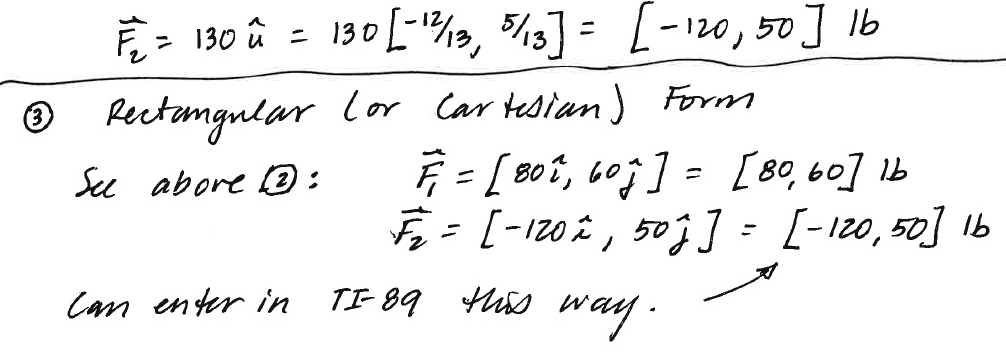 F⃗₂ = 130 û = 130 [-12/13, 5/13] = [-120, 50] lb
③ Rectangular (or Cartesian) Form
See above ②: F⃗₁ = [80î, 60ĵ] = [80, 60] lb
F⃗₂ = [-120î, 50ĵ] = [-120, 50] lb
Can enter in TI-89 this way.